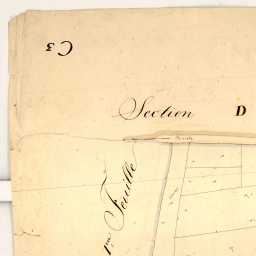 C 3
Section D
1re Feuille